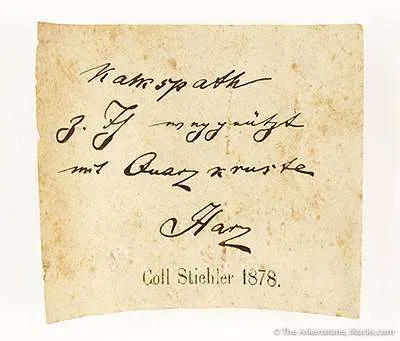 Kalkspath
z. Th weggeätzt
mit Quarzkruste
Harz
Coll Stiehler 1878.
© The Arkenstone, iRocks.com